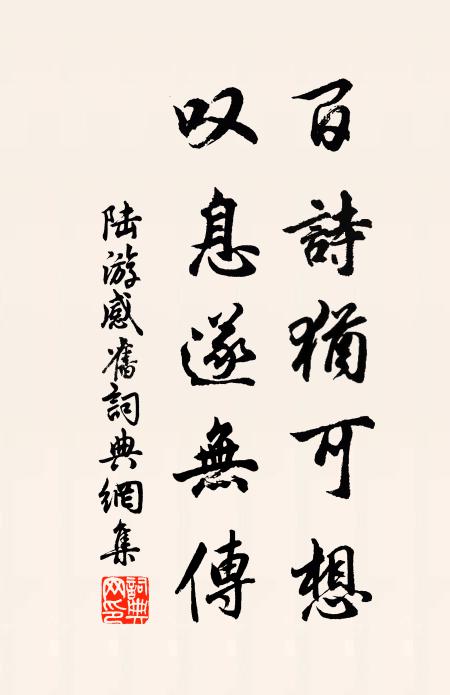 百詩猶可想
叹息遂無傳
陆游感舊詞典網集
詞典网印